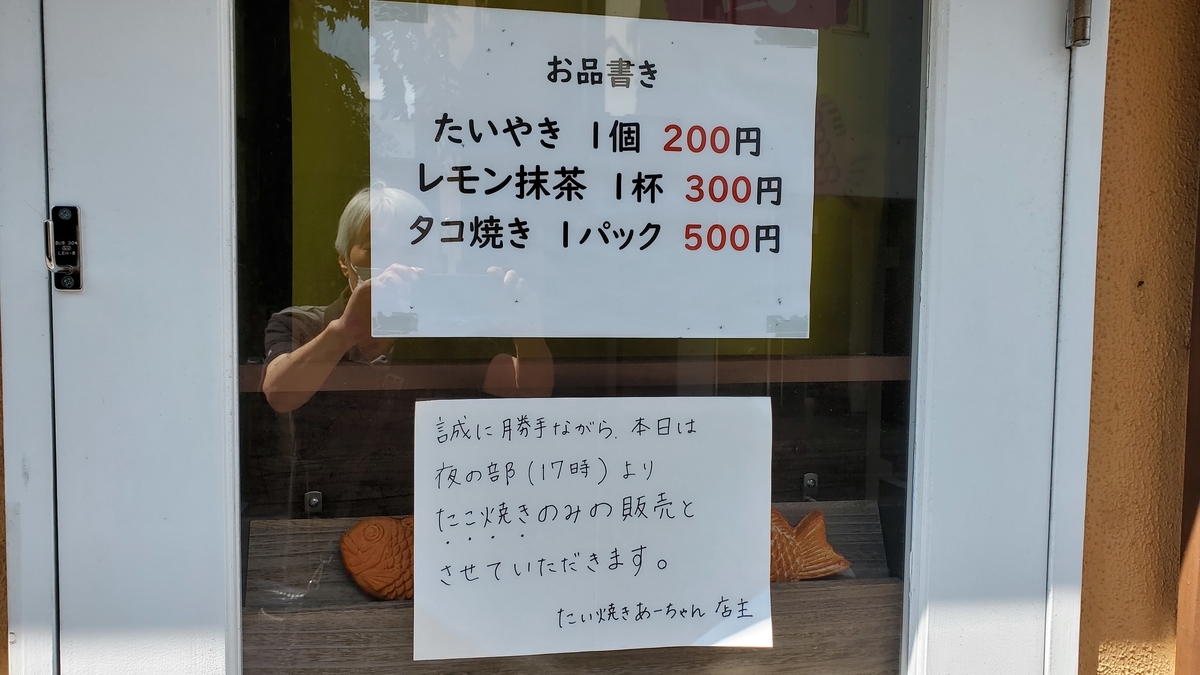 お品書き
たいやき 1個 200円
レモン抹茶 1杯 300円
タコ焼き 1パック 500円
誠に勝手ながら、本日は
夜の部(17時)より
たこ焼きのみの販売と
させていただきます。
たい焼きあーちゃん 店主